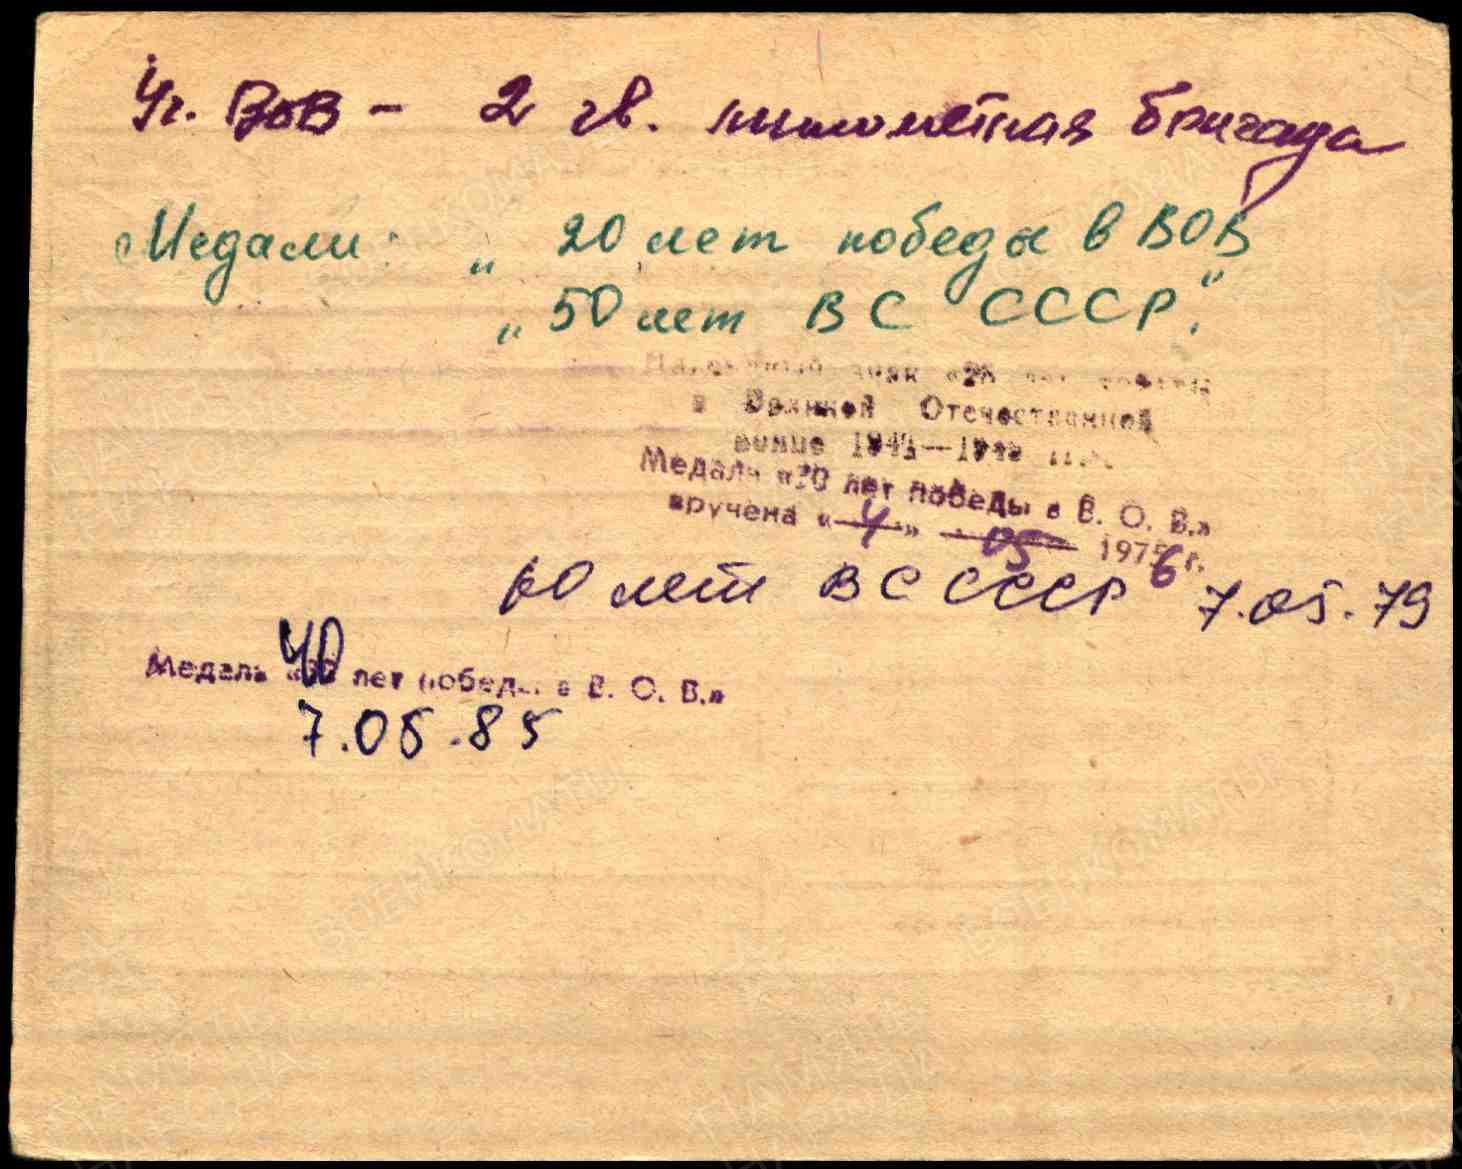 Уч. ВОВ - 2 гв. миномётная бригада
Медали: „20 лет победы в ВОВ"
„50 лет ВС СССР."
знак «25 лет победы
в Великой Отечественной
войне 1941—1945 г.г.
Медаль «30 лет победы в В. О. В.»
вручена «4» 05 1976 г.
60 лет ВС СССР 7.05.79
Медаль «40 лет победы в В. О. В.»
7.05.85
ПАМЯТЬ НАРОДА
ВОЕНКОМАТЫ